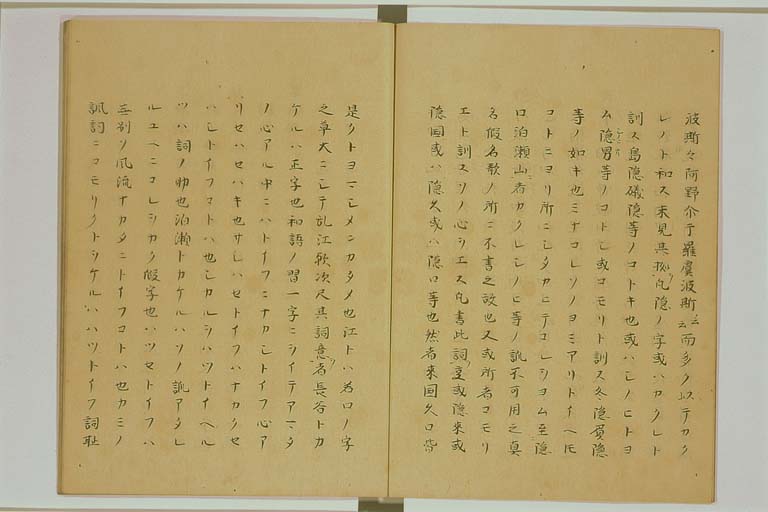 波斯々阿野介于羅虞波斯云云而多ク以テカク
レノト和ス未見其拠凡隠ノ字或ハカクレト
訓ス島隠礒隠等ノコトキ也或ハシノヒトヨ
ム隠男等ノコトシ或コモリト訓ス冬隠隠
等ノ如キ也ミナコレソノヨミアリトイヘモ
コトニヨリ所ニシタカヒテコレシヨム至隠
口泊瀬山者カクレシノヒ等ノ訓不可用之真
名假名歌ノ所ニ不書之故也又或所者コモリ
エト訓スソノ心シエス凡書此詞或隠來或
隠国或ハ隠久或ハ隠口等也然者來国久口皆
是クトヨマシメンカタメ也江トハ若口ノ字
之草大ニシテ乱江歟次尺其詞意者長谷トカ
ケルハ正字也和語ノ習一字ニシイテアマタ
ノ心アル中ニハトイフニナカシトイフ心ア
リセハセハキ也サレハセトイフハナカクセ
ハシトイフコトハ也シカルシハツトイヘル
ツハ詞ノ助也泊瀬トカケルハソノ訓アタレ
ルユヘニコレシカク假字也ハツセトイフハ
無別ノ風流ナカタニトイフコトハ也カミノ
諷詞ニコモリクトシケルハハツトイフ詞耻